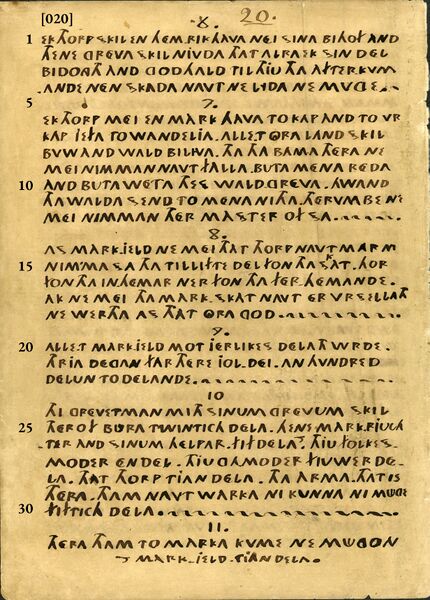 [020]
6. 20.
1 EK THORP SKIL EN HEMRIK HAVA NEI SINA BIHOF AND
THENE GREVA SKIL NIVDA THAT ALRA EK SIN DEL
BIDONGTH AND GOD HALD TIL THIU THA AFTERKVM
ANDE NEN SKADA NAVT NE LIDA NE MUGE.
5 7.
EK THORP MEI EN MARK HAVA TO KAP AND TO VR
KAP IEFTA TO WANDELIA. ALLET ORA LAND SKIL
BUW AND WALD BILIWA. THA THA BAMA THERA NE
MEI NIMMAN NAVT FALLA. BUTA MENA REDA
10 AND BUTA WETA THES WALD.GREVA. HWAND
THA WALDA SEND TO MENA NITHA. THERUMBE NE
MEI NIMMAN THER MASTER OF SA.
8.
AS MARK.IELD NE MEI THAT THORP NAVT MAR M
15 NIM'MA SA THA TILLIFTE DEL FON THA SKAT. HOR
FON THA INHEMAR NER FON THA FER.HEMANDE.
AK NE MEI THA MARK.SKAT NAVT ER VRSELLATH
NE WERTHA AS THAT ORA GOD.
9.
20 ALLET MARK.IELD MOT IERLIKES DELATH WRDE.
THRIA DEGAN FAR THERE IOL.DEI. AN HUNDRED
DELUN TO DELANDE.
10
THI GREVETMAN MITH SINUM GREVUM SKIL
25 THEROF BURA TWINTICH DELA. THENE MARK.RIUCH
TER AND SINUM HELPAR. FIF DELA. THIU FOLKES.
MODER EN DEL. THIU GA MODER FIUWER DE-
LA. THAT THORP TIAN DELA. THA ARMA. THAT IS
THERA. THAM NAVT WARKA NI KUNNA NI MUGE
30 FIFTICH DELA.
11.
THERA THAM TO MARKA KUME NE MUGON
MARK.IELD TIAN DELA.